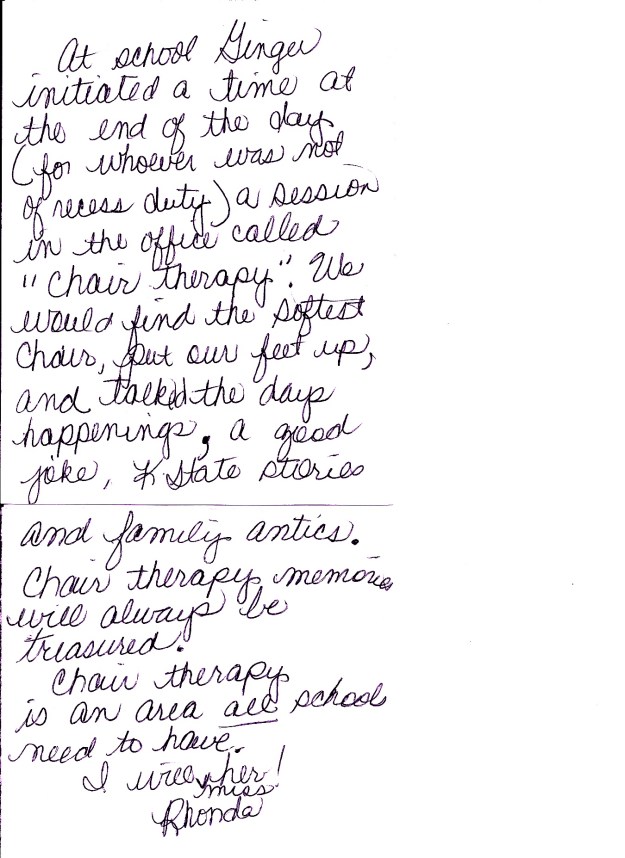 At school Ginger
initiated a time at
the end of the day
(for whoever was not
of recess duty) a session
in the office called
"Chair therapy". We
would find the softest
Chair, put our feet up,
and talked the days
happenings, a good
joke, K State stories
and family antics.
Chair therapy memories
will always be
treasured.
Chair therapy
is an area all school
need to have.
I will miss her!
Rhonda